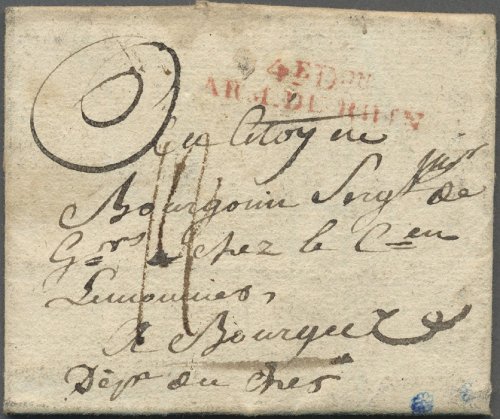 4E DON
ARM. DU RHIN
Au Citoyen
Bourgouin Sergt. Mjr
de
Grs. chez le Cen
Lemonnier,
A Bourges
Dépt. du Cher